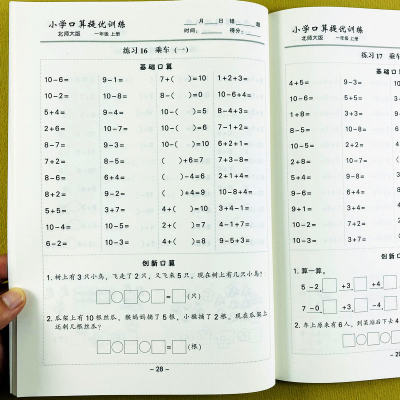 小学口算提优训练
北师大版 一年级 上册
月 日 错 题
时间: 得分:
练习 16 乘车 (一)
基础口算
10-6= 9-1= 7+( )=10 1+2+3=
10-2= 10-8= 8-( )=0 10-6+4=
5+4= 9-4= ( )+3=10 9-3-4=
2+6= 10-7= 10-( )=6 7-1+2=
8-7= 9-3= 10-( )=6 6+2+1=
7+2= 8-5= ( )+6=7 7+3-8=
8-6= 4+6= ( )-4=6 2+1+4=
8+2= 9-2= ( )+4=9 10-8+4=
5+5= 2+7= 4+( )=10 3+4-1=
10-4= 10-5= 2+( )=10 8-7+6=
6-2= 10-3= 4+( )=8 9-5+3=
创新口算
1. 树上有 3 只小鸟, 飞走了 2 只, 又飞来 5 只。现在树上有几只小鸟?
□○□○□=□(只)
2. 瓜架上有 10 根丝瓜, 猴妈妈摘了 5 根, 小猴摘了 2 根。现在瓜架上
还剩几根丝瓜?
□○□○□=□(根)
- 28 -
小学口算提优训练
北师大版 一年级 上册
练习 17 乘车
基础口算
4+5= 9-3=
9-5= 2+8=
6+4= 10-4=
1+8= 2+7=
8-5= 10-6=
10-7= 3+6=
9-6= 4+4=
9+1= 3+4=
5+5= 9-7=
10-2= 8-4=
10-3= 3+7=
1. 算一算。
5 -2 □ +3 □ +4 □
7 -0 □ +3 □ -4 □
2. 车上原来有 6 人, 到某站后下去 4
□○□○□